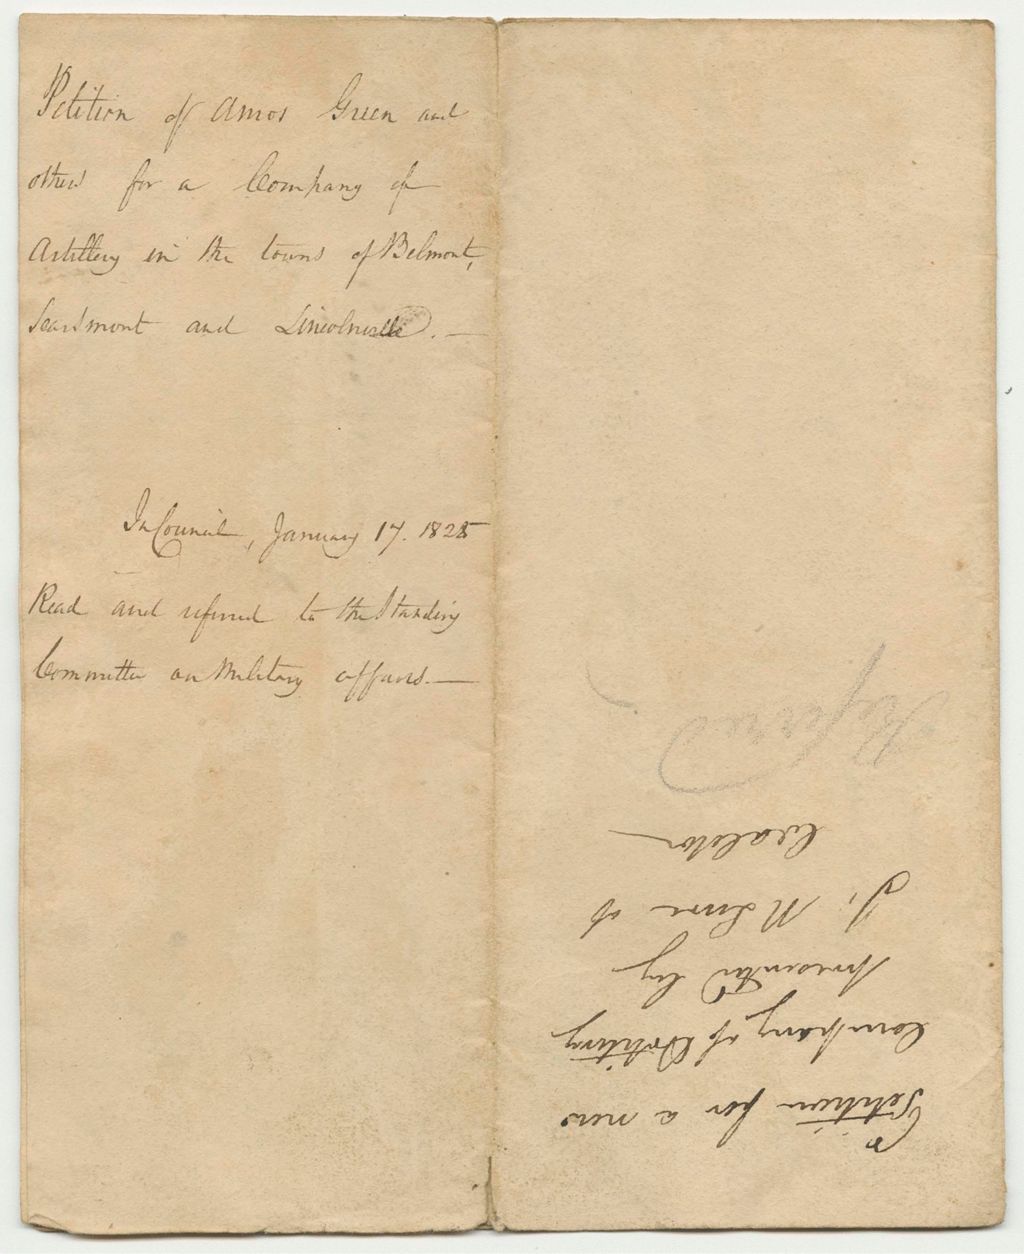 Petition of Amos Green and
others for a Company of
Artillery in the towns of Belmont,
Searsmont and Lincolnville. —
In Council, January 17. 1825
Read and referred to the Standing
Committee on Military affairs. —
Petition for a new
Company of Artillery
presented by
J. of
Waldo
Referred